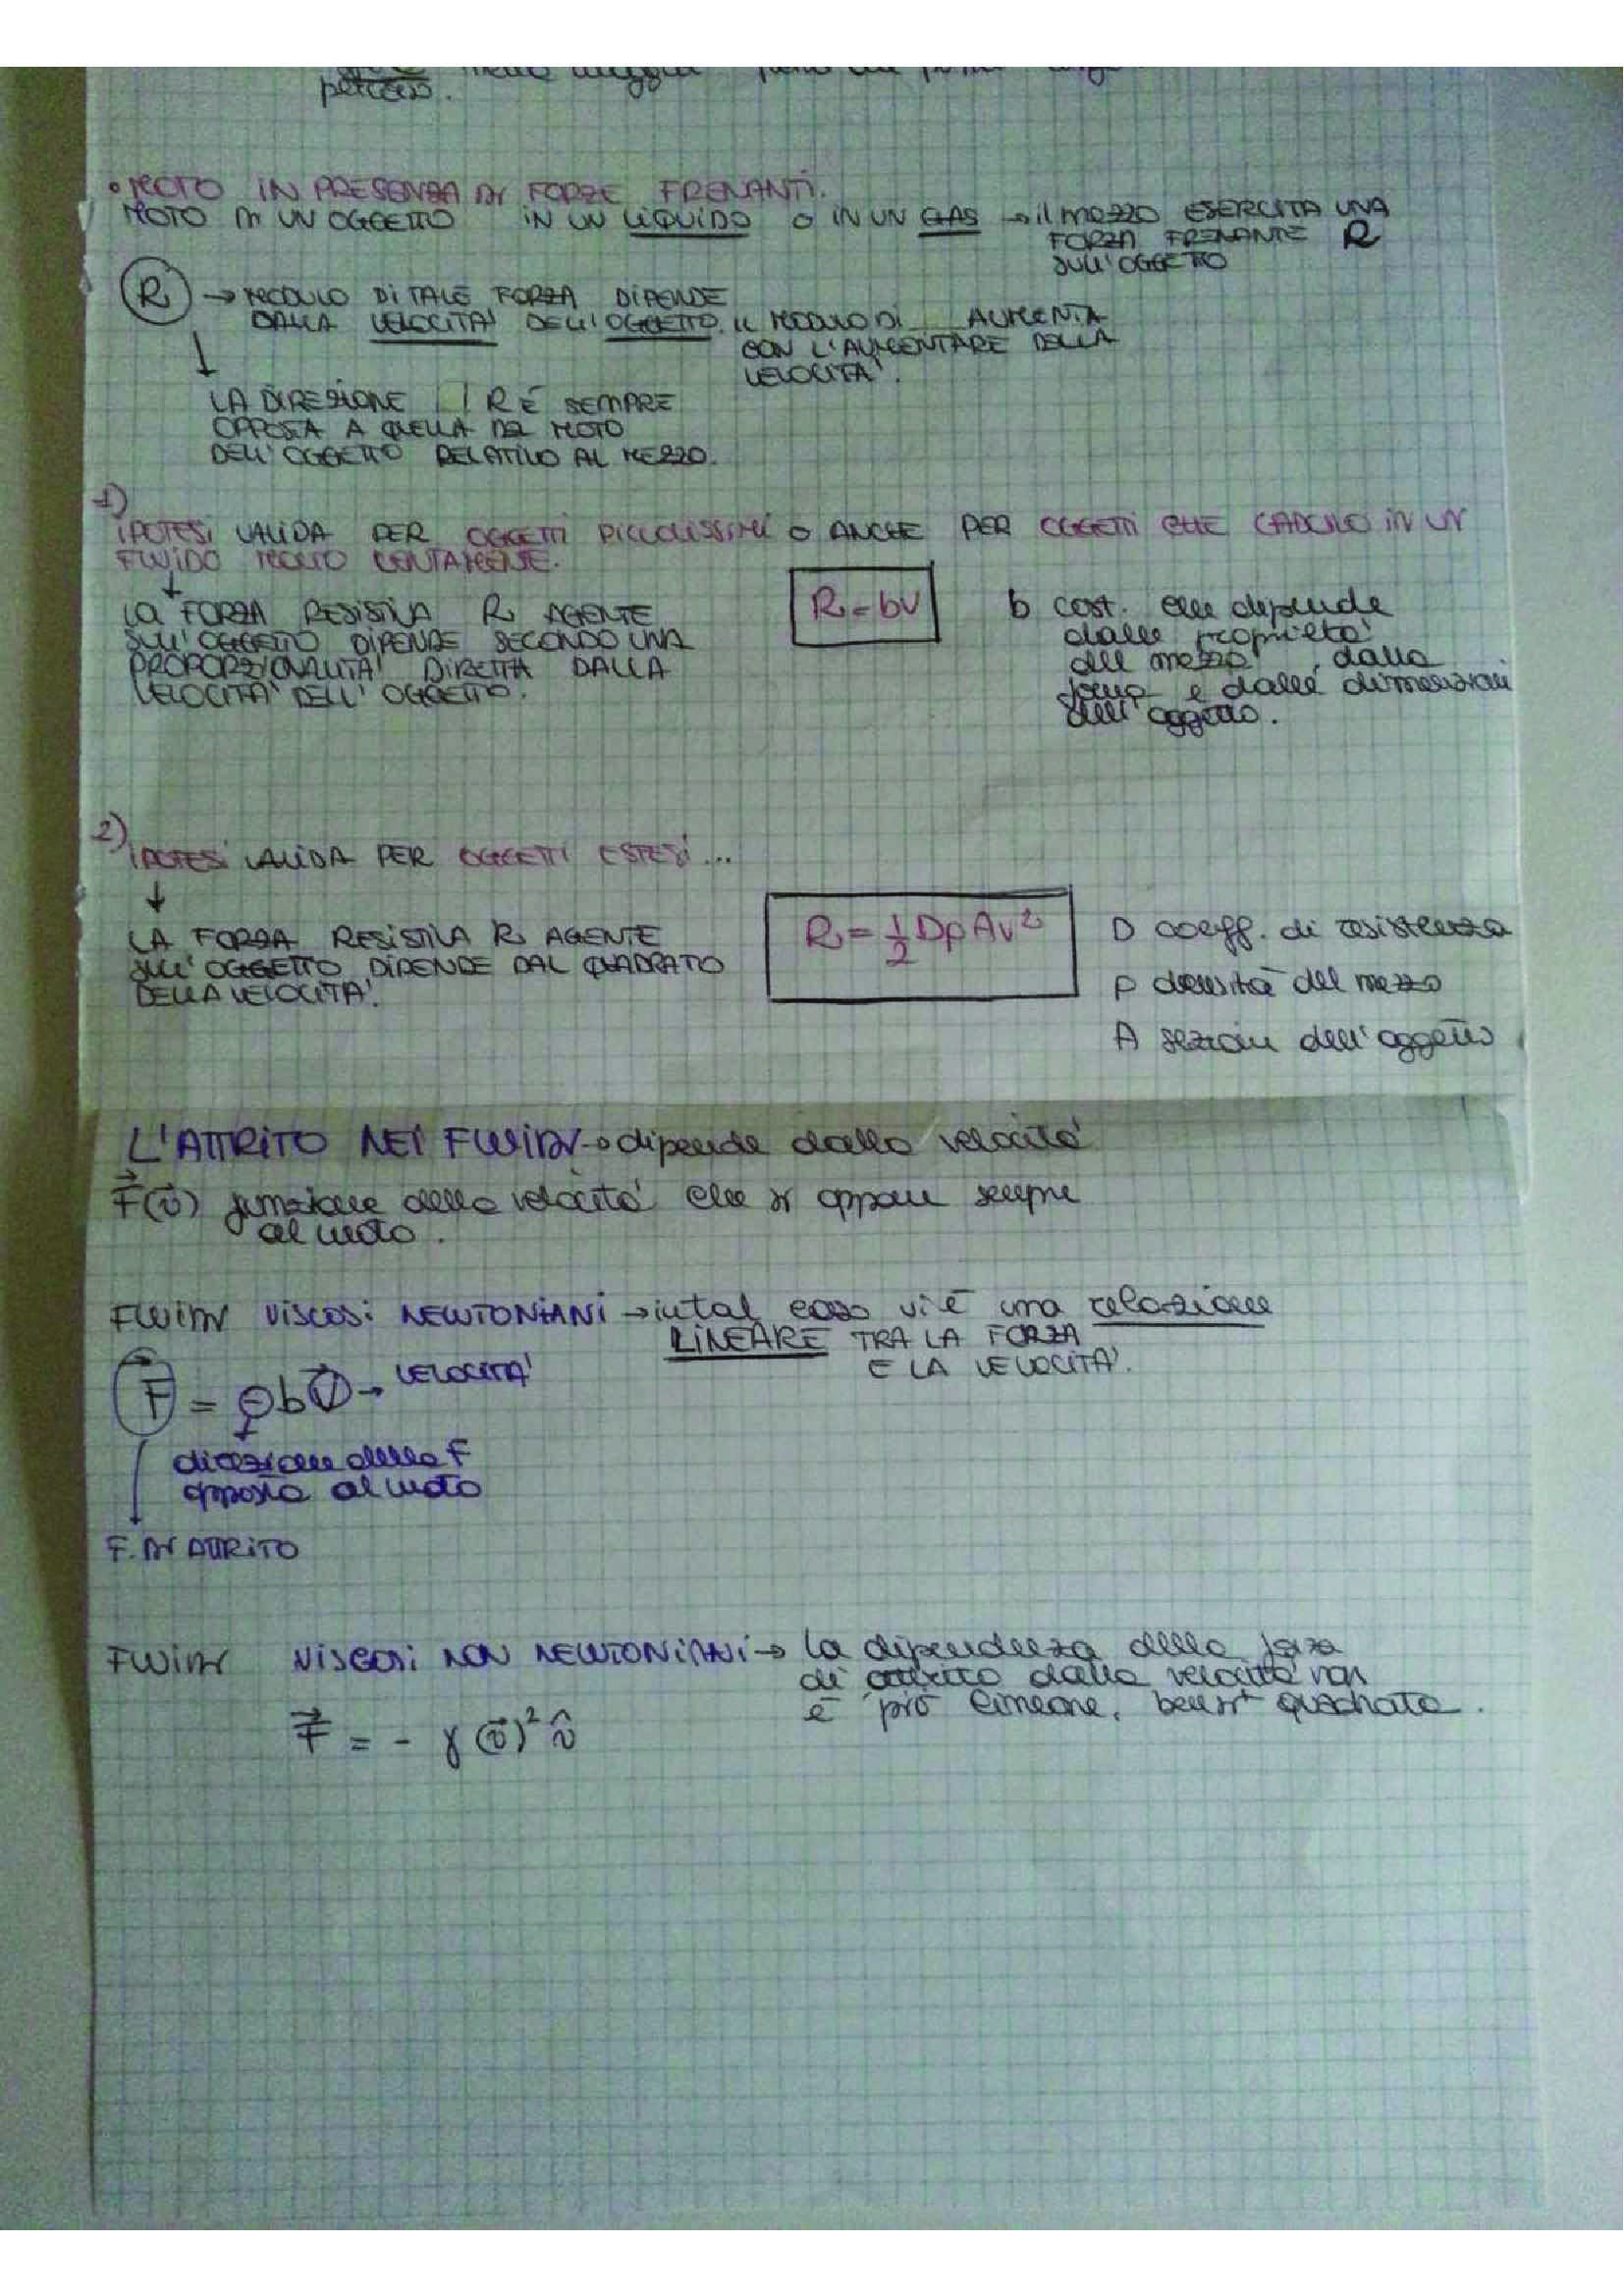 percorso.
• MOTO IN PRESENZA DI FORZE FRENANTI.
MOTO DI UN OGGETTO IN UN LIQUIDO O IN UN GAS → il mezzo ESERCITA UNA
FORZA FRENANTE R
SULL'OGGETTO
R → MODULO DI TALE FORZA DIPENDE
DALLA VELOCITA' DELL'OGGETTO. IL MODULO DI AUMENTA
CON L'AUMENTARE DELLA
VELOCITA'.
↓
LA DIREZIONE R È SEMPRE
OPPOSTA A QUELLA DEL MOTO
DELL'OGGETTO RELATIVO AL MEZZO.
1)
IPOTESI VALIDA PER OGGETTI PICCOLISSIMI O ANCHE PER OGGETTI CHE CADONO IN UN
FLUIDO MOLTO LENTAMENTE.
↓
LA FORZA RESISTIVA R AGENTE
SULL'OGGETTO DIPENDE SECONDO UNA
PROPORZIONALITA' DIRETTA DALLA
VELOCITA' DELL'OGGETTO.
R = bv
b cost. che dipende
dalle proprietà
del mezzo, dalla
forma e dalle dimensioni
dell'oggetto.
2)
IPOTESI VALIDA PER OGGETTI ESTESI...
↓
LA FORZA RESISTIVA R AGENTE
SULL'OGGETTO DIPENDE DAL QUADRATO
DELLA VELOCITA'.
R = 1/2 DρAv²
D coeff. di resistenza
ρ densità del mezzo
A sezione dell'oggetto
L'ATTRITO NEI FLUIDI → dipende dalla velocità
F⃗(v⃗) funzione della velocità che si oppone sempre
al moto.
FLUIDI VISCOSI NEWTONIANI → in tal caso vi è una relazione
LINEARE TRA LA FORZA
E LA VELOCITA'.
F⃗ = -bv⃗ → VELOCITA'
direzione della F
opposta al moto
F. DI ATTRITO
FLUIDI VISCOSI NON NEWTONIANI → la dipendenza della forza
di attrito dalla velocità non
è più lineare, bensì quadrata.
F⃗ = - γ(v⃗)² v̂